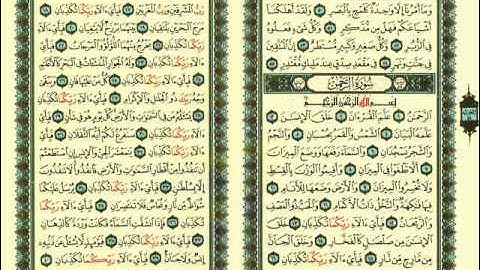 وَمَآ أَمْرُنَآ إِلَّا وَٰحِدَةٌ كَلَمْحٍۭ بِٱلْبَصَرِ ۝ وَلَقَدْ أَهْلَكْنَآ
أَشْيَاعَكُمْ فَهَلْ مِن مُّدَّكِرٍ ۝ وَكُلُّ شَىْءٍ فَعَلُوهُ
فِى ٱلزُّبُرِ ۝ وَكُلُّ صَغِيرٍ وَكَبِيرٍ مُّسْتَطَرٌ ۝ إِنَّ ٱلْمُتَّقِينَ
فِى جَنَّٰتٍ وَنَهَرٍ ۝ فِى مَقْعَدِ صِدْقٍ عِندَ مَلِيكٍ مُّقْتَدِرٍۭ ۝
سُورَةُ الرَّحْمٰن
بِسْمِ ٱللَّهِ ٱلرَّحْمَٰنِ ٱلرَّحِيمِ
ٱلرَّحْمَٰنُ ۝ عَلَّمَ ٱلْقُرْءَانَ ۝ خَلَقَ ٱلْإِنسَٰنَ ۝
عَلَّمَهُ ٱلْبَيَانَ ۝ ٱلشَّمْسُ وَٱلْقَمَرُ بِحُسْبَانٍ ۝
وَٱلنَّجْمُ وَٱلشَّجَرُ يَسْجُدَانِ ۝ وَٱلسَّمَآءَ رَفَعَهَا وَوَضَعَ ٱلْمِيزَانَ
۝ أَلَّا تَطْغَوْا۟ فِى ٱلْمِيزَانِ ۝ وَأَقِيمُوا۟ ٱلْوَزْنَ بِٱلْقِسْطِ
وَلَا تُخْسِرُوا۟ ٱلْمِيزَانَ ۝ وَٱلْأَرْضَ وَضَعَهَا لِلْأَنَامِ ۝
فِيهَا فَٰكِهَةٌ وَٱلنَّخْلُ ذَاتُ ٱلْأَكْمَامِ ۝ وَٱلْحَبُّ ذُو ٱلْعَصْفِ
وَٱلرَّيْحَانُ ۝ فَبِأَىِّ ءَالَآءِ رَبِّكُمَا تُكَذِّبَانِ ۝ خَلَقَ
ٱلْإِنسَٰنَ مِن صَلْصَٰلٍ كَٱلْفَخَّارِ ۝ وَخَلَقَ ٱلْجَآنَّ
مِن مَّارِجٍ مِّن نَّارٍ ۝ فَبِأَىِّ ءَالَآءِ رَبِّكُمَا تُكَذِّبَانِ ۝
رَبُّ ٱلْمَشْرِقَيْنِ وَرَبُّ ٱلْمَغْرِبَيْنِ ۝ فَبِأَىِّ ءَالَآءِ رَبِّكُمَا تُكَذِّبَانِ ۝
مَرَجَ ٱلْبَحْرَيْنِ يَلْتَقِيَانِ ۝ بَيْنَهُمَا بَرْزَخٌ لَّا يَبْغِيَانِ ۝ فَبِأَىِّ ءَالَآءِ
رَبِّكُمَا تُكَذِّبَانِ ۝ يَخْرُجُ مِنْهُمَا ٱللُّؤْلُؤُ وَٱلْمَرْجَانُ ۝
فَبِأَىِّ ءَالَآءِ رَبِّكُمَا تُكَذِّبَانِ ۝ وَلَهُ ٱلْجَوَارِ ٱلْمُنشَـَٔاتُ فِى ٱلْبَحْرِ كَٱلْأَعْلَٰمِ
۝ فَبِأَىِّ ءَالَآءِ رَبِّكُمَا تُكَذِّبَانِ ۝ كُلُّ مَنْ عَلَيْهَا فَانٍ ۝ وَيَبْقَىٰ
وَجْهُ رَبِّكَ ذُو ٱلْجَلَٰلِ وَٱلْإِكْرَامِ ۝ فَبِأَىِّ ءَالَآءِ رَبِّكُمَا تُكَذِّبَانِ
۝ يَسْـَٔلُهُۥ مَن فِى ٱلسَّمَٰوَٰتِ وَٱلْأَرْضِ كُلَّ يَوْمٍ هُوَ فِى شَأْنٍ ۝ فَبِأَىِّ ءَالَآءِ
رَبِّكُمَا تُكَذِّبَانِ ۝ سَنَفْرُغُ لَكُمْ أَيُّهَ ٱلثَّقَلَانِ ۝ فَبِأَىِّ ءَالَآءِ
رَبِّكُمَا تُكَذِّبَانِ ۝ يَٰمَعْشَرَ ٱلْجِنِّ وَٱلْإِنسِ إِنِ ٱسْتَطَعْتُمْ
أَن تَنفُذُوا۟ مِنْ أَقْطَارِ ٱلسَّمَٰوَٰتِ وَٱلْأَرْضِ فَٱنفُذُوا۟ لَا تَنفُذُونَ
إِلَّا بِسُلْطَٰنٍ ۝ فَبِأَىِّ ءَالَآءِ رَبِّكُمَا تُكَذِّبَانِ ۝ يُرْسَلُ عَلَيْكُمَا
شُوَاظٌ مِّن نَّارٍ وَنُحَاسٌ فَلَا تَنتَصِرَانِ ۝ فَبِأَىِّ ءَالَآءِ رَبِّكُمَا
تُكَذِّبَانِ ۝ فَإِذَا ٱنشَقَّتِ ٱلسَّمَآءُ فَكَانَتْ وَرْدَةً كَٱلدِّهَانِ
۝ فَبِأَىِّ ءَالَآءِ رَبِّكُمَا تُكَذِّبَانِ ۝ فَيَوْمَئِذٍ لَّا يُسْـَٔلُ عَن ذَنۢبِهِۦٓ
إِنسٌ وَلَا جَآنٌّ ۝ فَبِأَىِّ ءَالَآءِ رَبِّكُمَا تُكَذِّبَانِ ۝